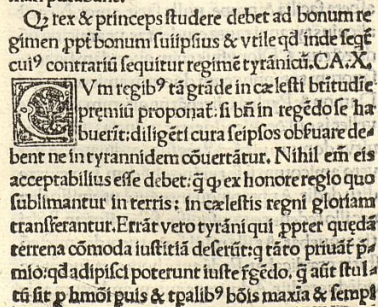 Qꝫ rex & princeps studere debet ad bonum re
gimen ꝓpť bonum suiipsius & vtile qď inde seqť
cuiꝰ contrariũ sequitur regimẽ tyrãnicũ. CA. X.
CVm regibꝰ tã grãde in cælesti bťitudĩe
pręmiũ proponať: si bñ in regẽdo se ha
buerĩt: diligẽti cura seipsos obſuare de⸗
bent ne in tyrannidem cõuertãtur. Nihil eṁ eis
acceptabilius esse debet: q̃ ꝙ ex honore regio quo
sublimantur in terris: in cælestis regni gloriam
transferantur. Errãt vero tyrãni qui ꝓpter quędã
terrena cõmoda iustitiã deserũt: q tãto priuãť p̃⸗
mio: qď adipisci poterunt iuste r̃gẽdo. q̃ aũt stul⸗
tũ sit ꝓ hm̃oi ꝑuis & tp̃alibꝰ bõis maxĩa &